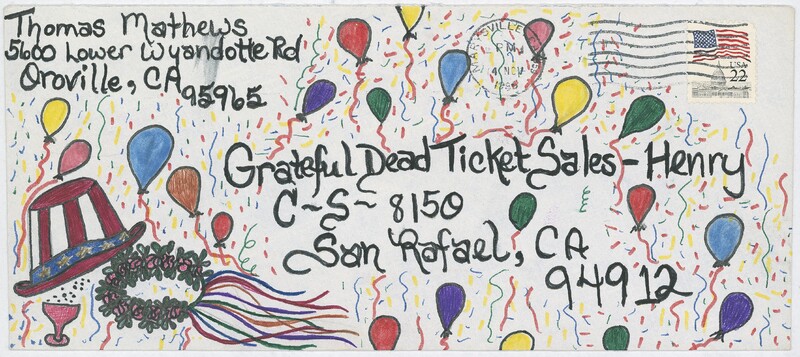 Thomas Mathews
5600 Lower Wyandotte Rd
Oroville, CA
95965
PM
4 NOV
USA
22
Grateful Dead Ticket Sales - Henry
C~S~ 8150
San Rafael, CA
94912